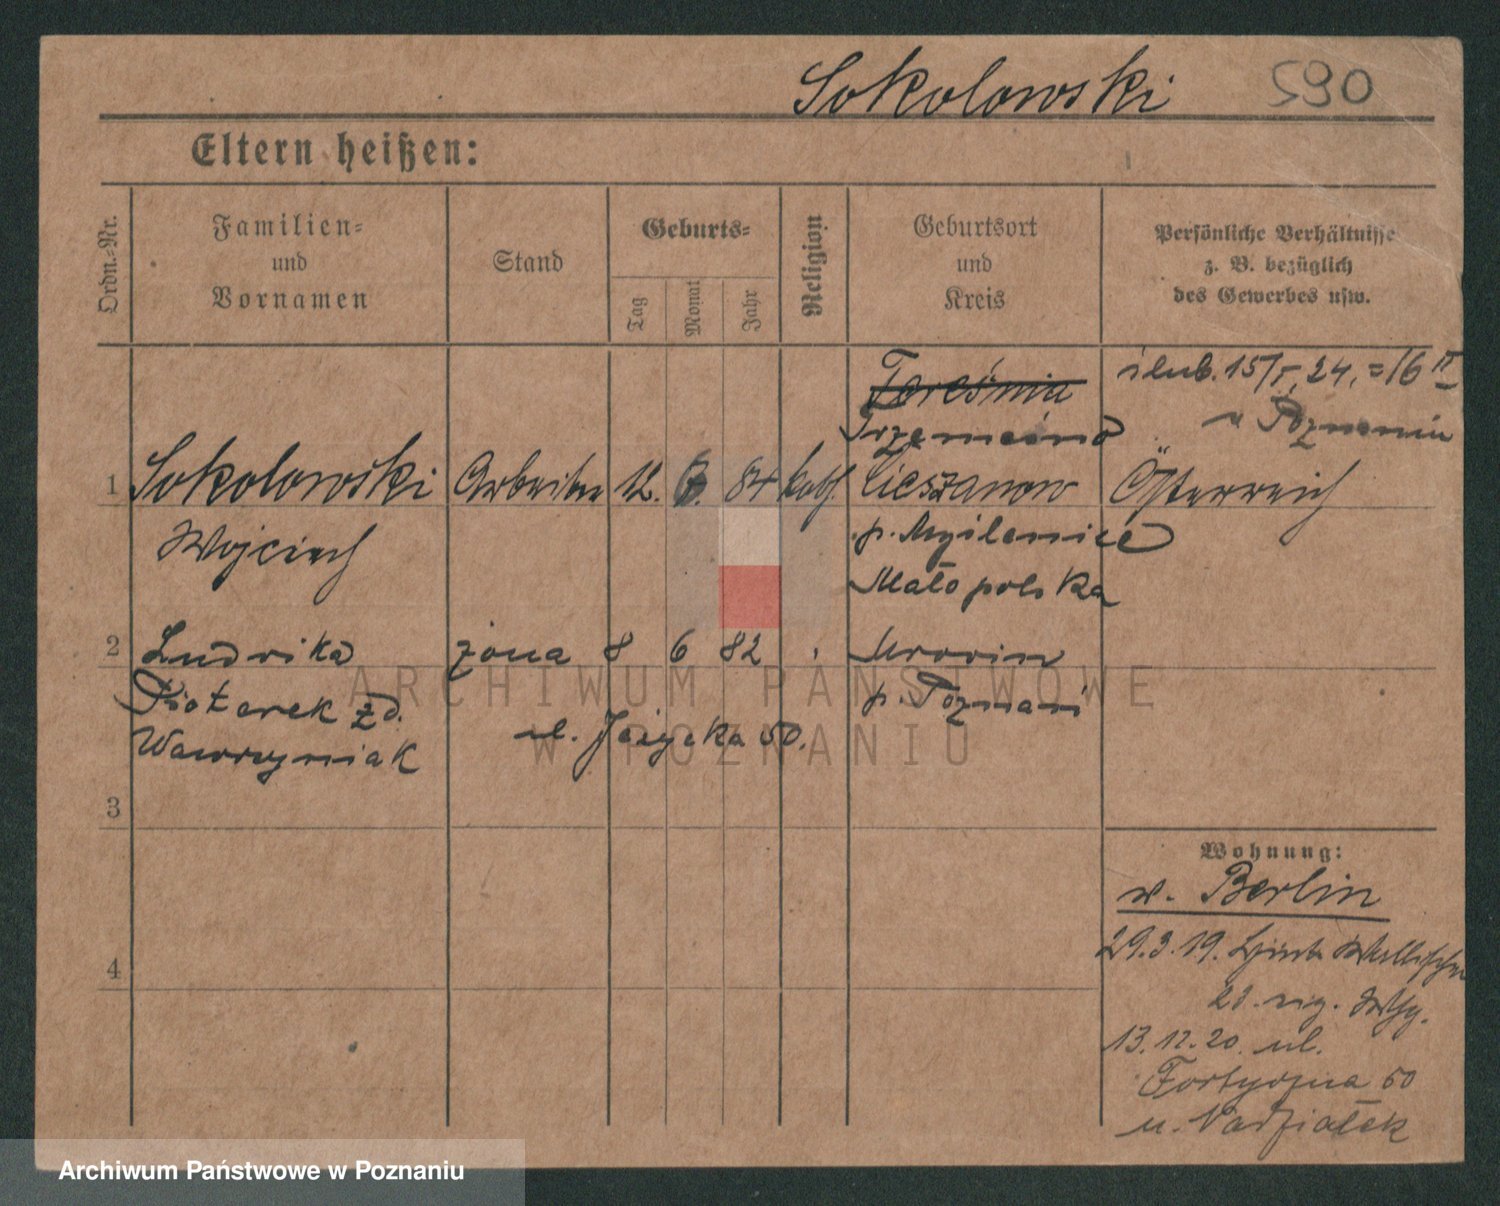 Sokolowski 590
Eltern heißen:
Ordn.-Nr.
Familien-
und
Vornamen
Stand
Geburts-
Tag
Monat
Jahr
Religion
Geburtsort
und
Kreis
Persönliche Verhältnisse
z. B. bezüglich
des Gewerbes usw.
ślub. 15/I. 24. = 16 II
w Poznaniu
1 Sokolowski Arbeiter 12. 84 kath. Cieszanow Österreich
Wojciech
p. Myślenice
Małopolska
2 Ludwika żona 8 6 82 Mrowin
Piotarek zd. p. Poznań
Wawrzyniak ul. 50.
3
4
Wohnung:
w. Berlin
29.3.19.
23.
13.12.20. ul.
Fortyczna 50
u.
ARCHIWUM PAŃSTWOWE
W POZNANIU
Archiwum Państwowe w Poznaniu